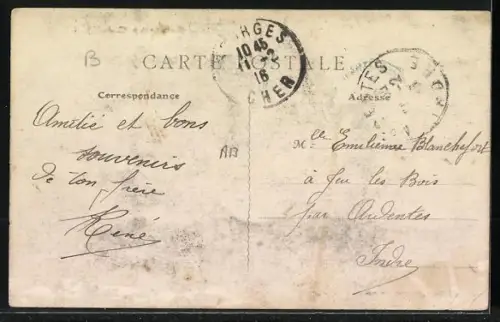 B
CARTE POSTALE
BOURGES
10 45
11 - 2
16
CHER
Correspondance
Adresse
Amitié et bons
souvenirs
de ton frère
René
AB
Mlle Emilienne Blanchefort
à Jeu les Bois
par Ardentes
Indre